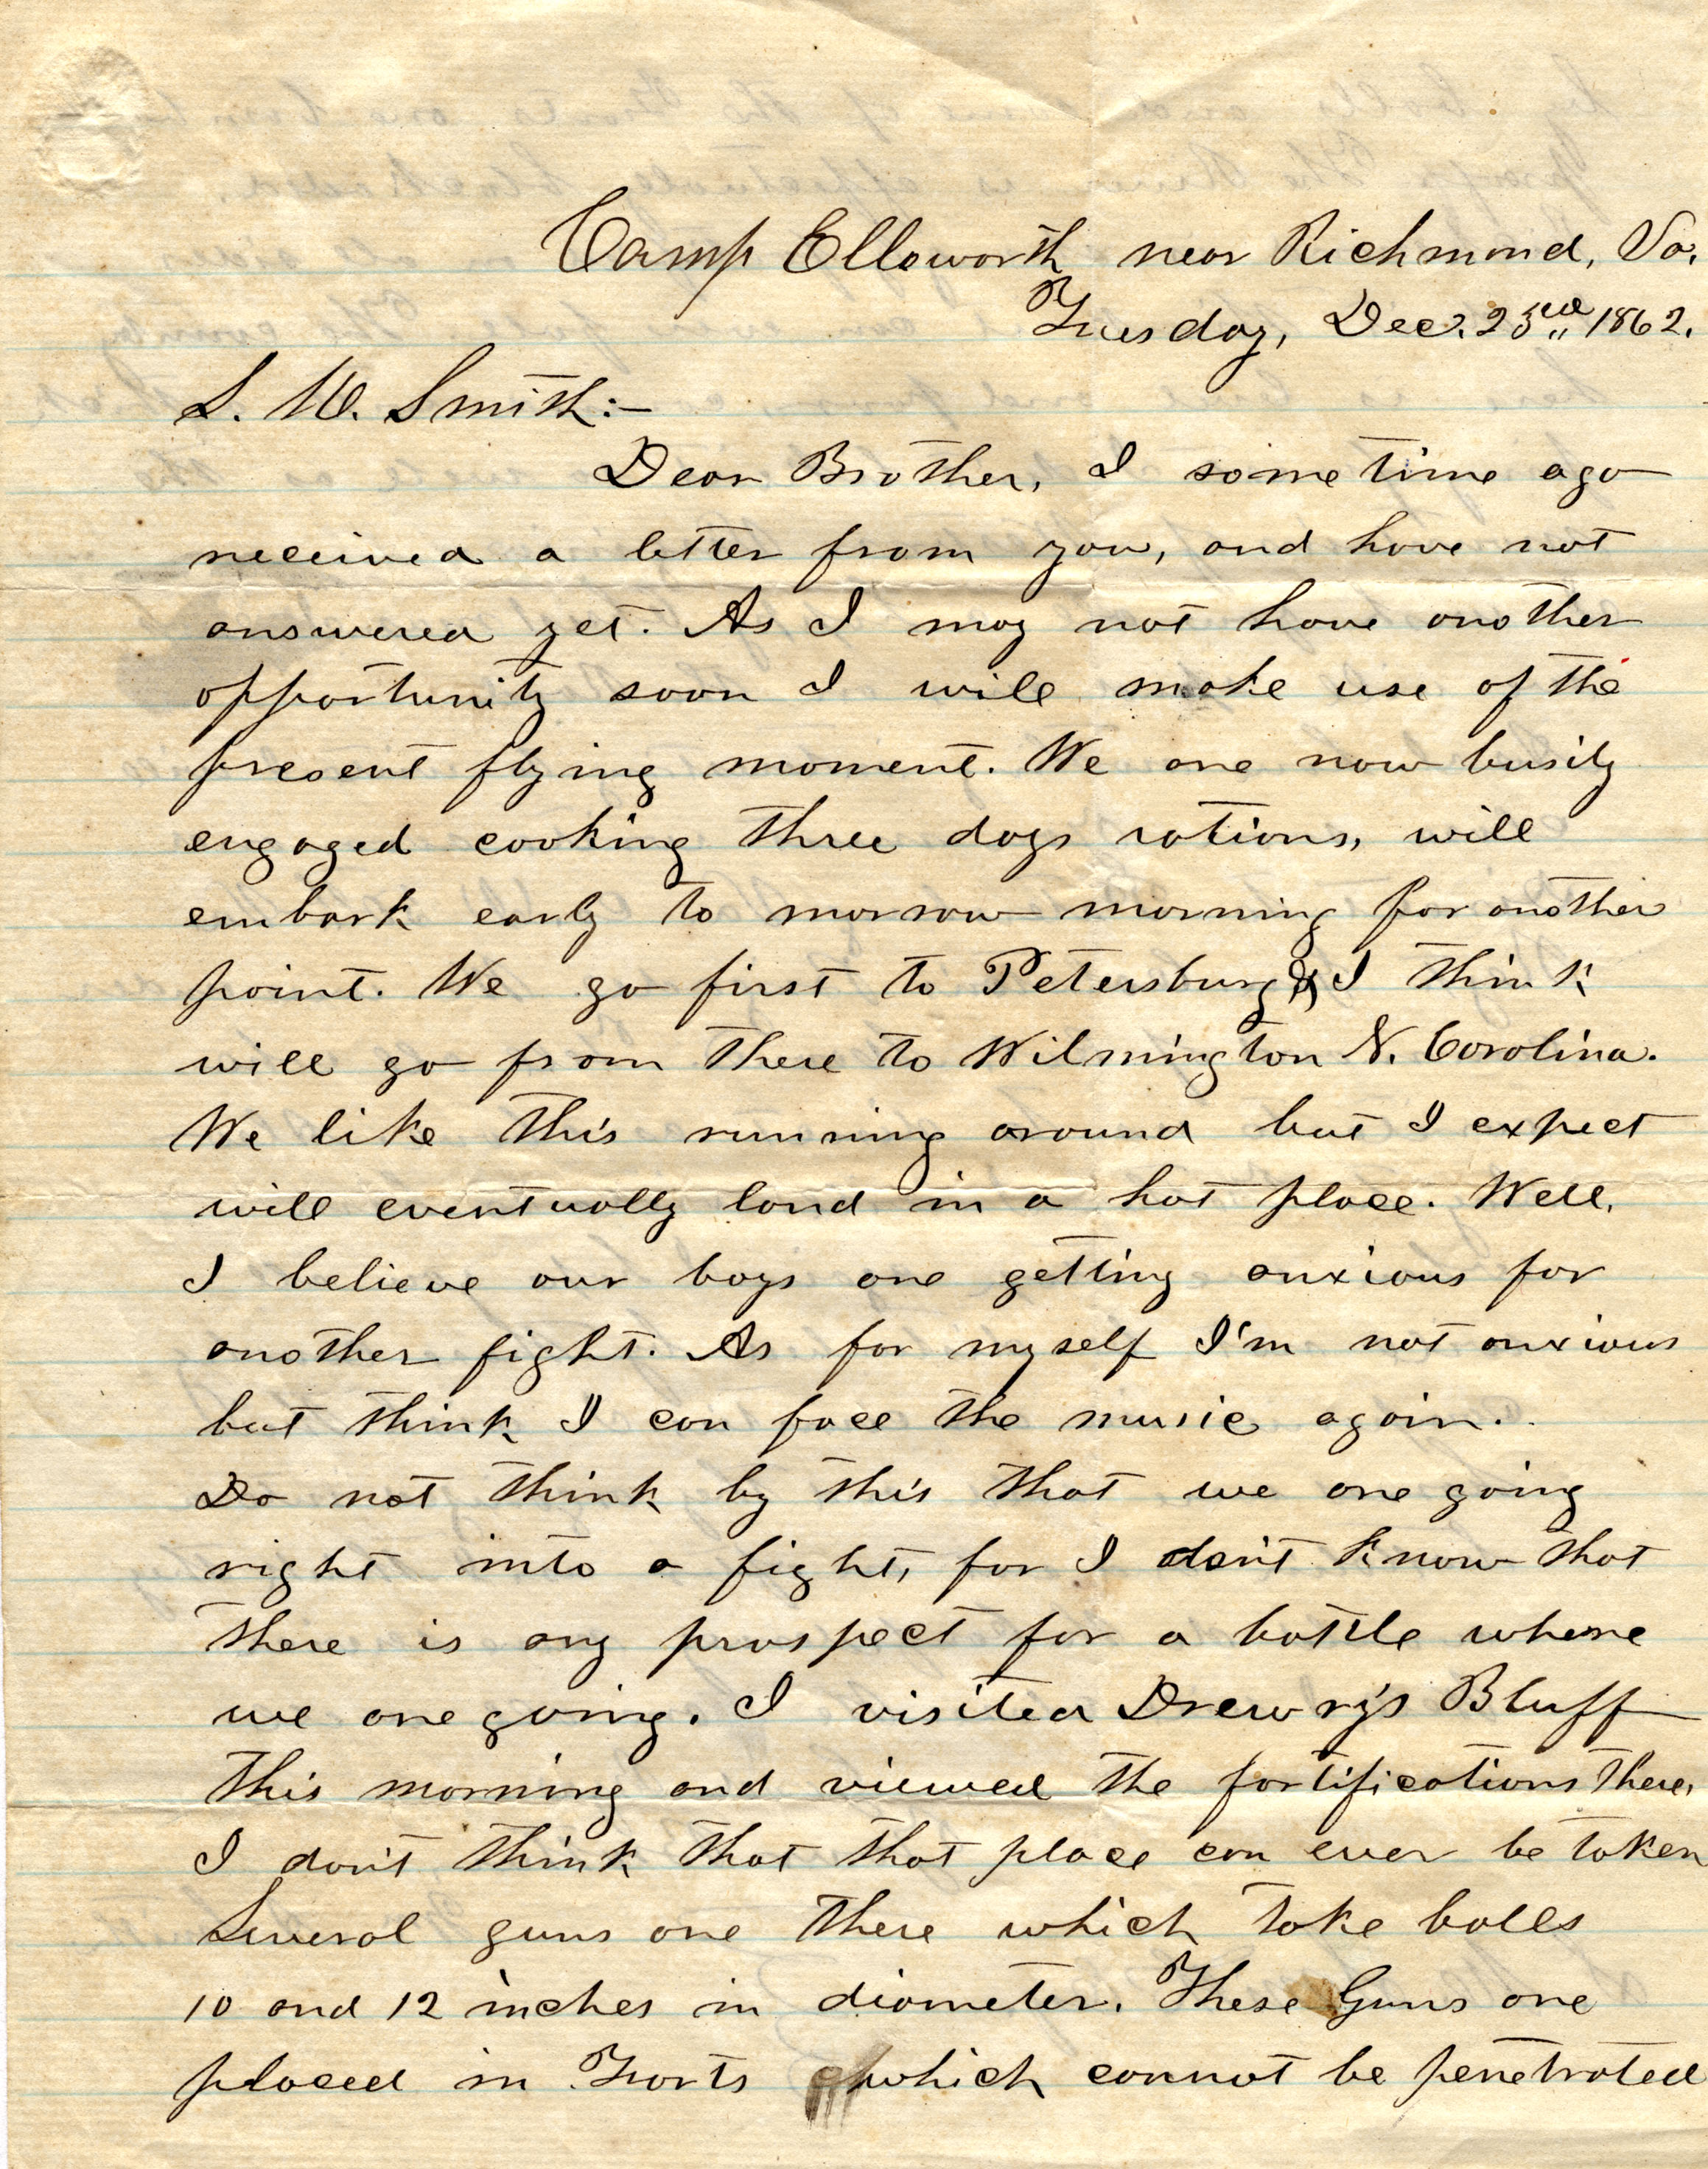 Camp Ellsworth near Richmond, Va.
Tuesday, Dec. 23rd 1862.
S. W. Smith:-
Dear Brother, I some time ago
received a letter from you, and have not
answered yet. As I may not have another
opportunity soon I will make use of the
present flying moment. We are now busily
engaged cooking three days rations, will
embark early to morrow morning for another
point. We go first to Petersburg & I think
will go from there to Wilmington N. Carolina.
We like this running around but I expect
will eventually land in a hot place. Well,
I believe our boys are getting anxious for
another fight. As for myself I'm not anxious
but think I can face the music again.
Do not think by this that we are going
right into a fight, for I don't know that
there is any prospect for a battle where
we are going. I visited Drewry's Bluff
this morning and viewed the fortifications there,
I don't think that that place can ever be taken
Several guns are there which take balls
10 and 12 inches in diameter. These Guns are
placed in Forts which cannot be penetrated